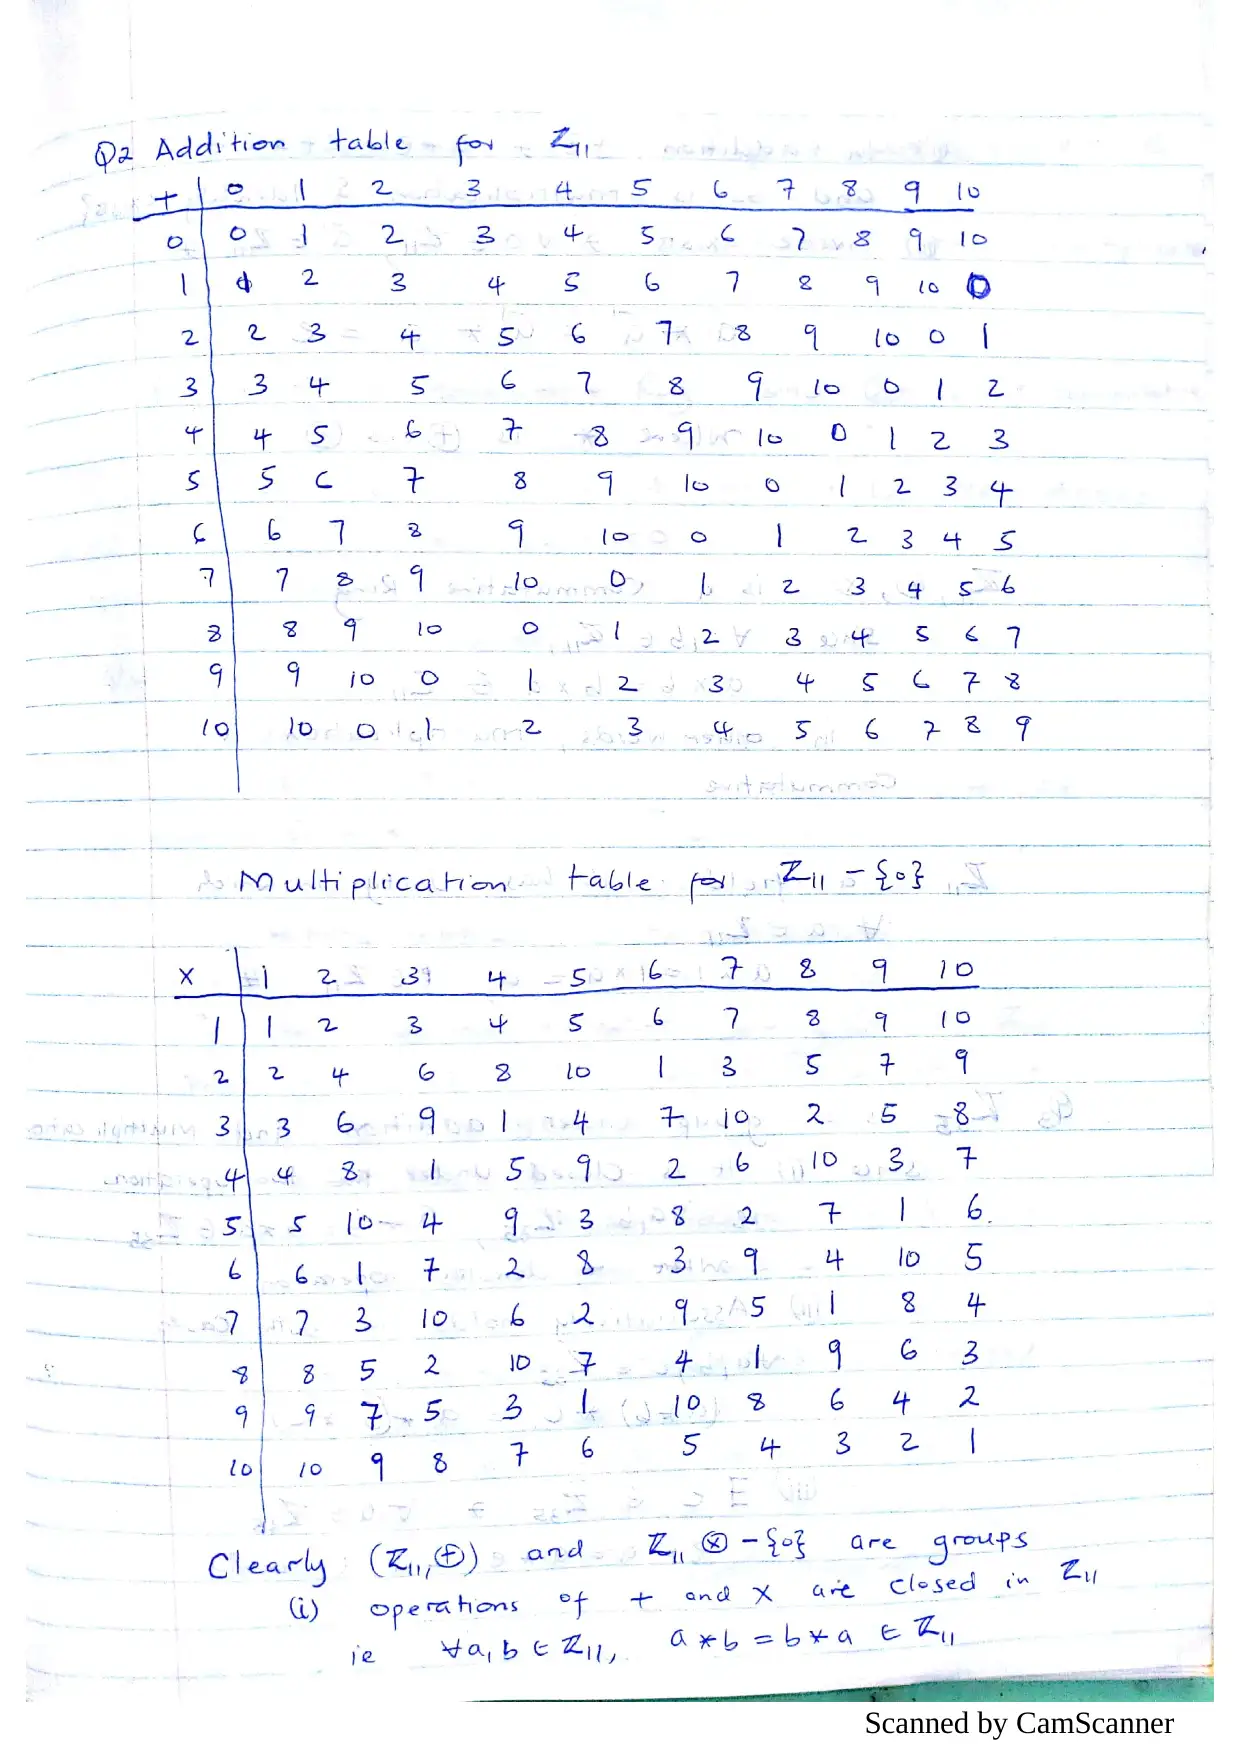 Q2 Addition table for Z11
+ 0 1 2 3 4 5 6 7 8 9 10
0 0 1 2 3 4 5 6 7 8 9 10
1 1 2 3 4 5 6 7 8 9 10 0
2 2 3 4 5 6 7 8 9 10 0 1
3 3 4 5 6 7 8 9 10 0 1 2
4 4 5 6 7 8 9 10 0 1 2 3
5 5 6 7 8 9 10 0 1 2 3 4
6 6 7 8 9 10 0 1 2 3 4 5
7 7 8 9 10 0 1 2 3 4 5 6
8 8 9 10 0 1 2 3 4 5 6 7
9 9 10 0 1 2 3 4 5 6 7 8
10 10 0 1 2 3 4 5 6 7 8 9
Multiplication table for Z11 - {0}
x 1 2 3 4 5 6 7 8 9 10
1 1 2 3 4 5 6 7 8 9 10
2 2 4 6 8 10 1 3 5 7 9
3 3 6 9 1 4 7 10 2 5 8
4 4 8 1 5 9 2 6 10 3 7
5 5 10 4 9 3 8 2 7 1 6
6 6 1 7 2 8 3 9 4 10 5
7 7 3 10 6 2 9 5 1 8 4
8 8 5 2 10 7 4 1 9 6 3
9 9 7 5 3 1 10 8 6 4 2
10 10 9 8 7 6 5 4 3 2 1
Clearly (Z11, ⊕) and Z11 ⊗ - {0} are groups
(i) operations of + and x are closed in Z11
ie ∀a, b ∈ Z11, a * b = b * a ∈ Z11
Scanned by CamScanner